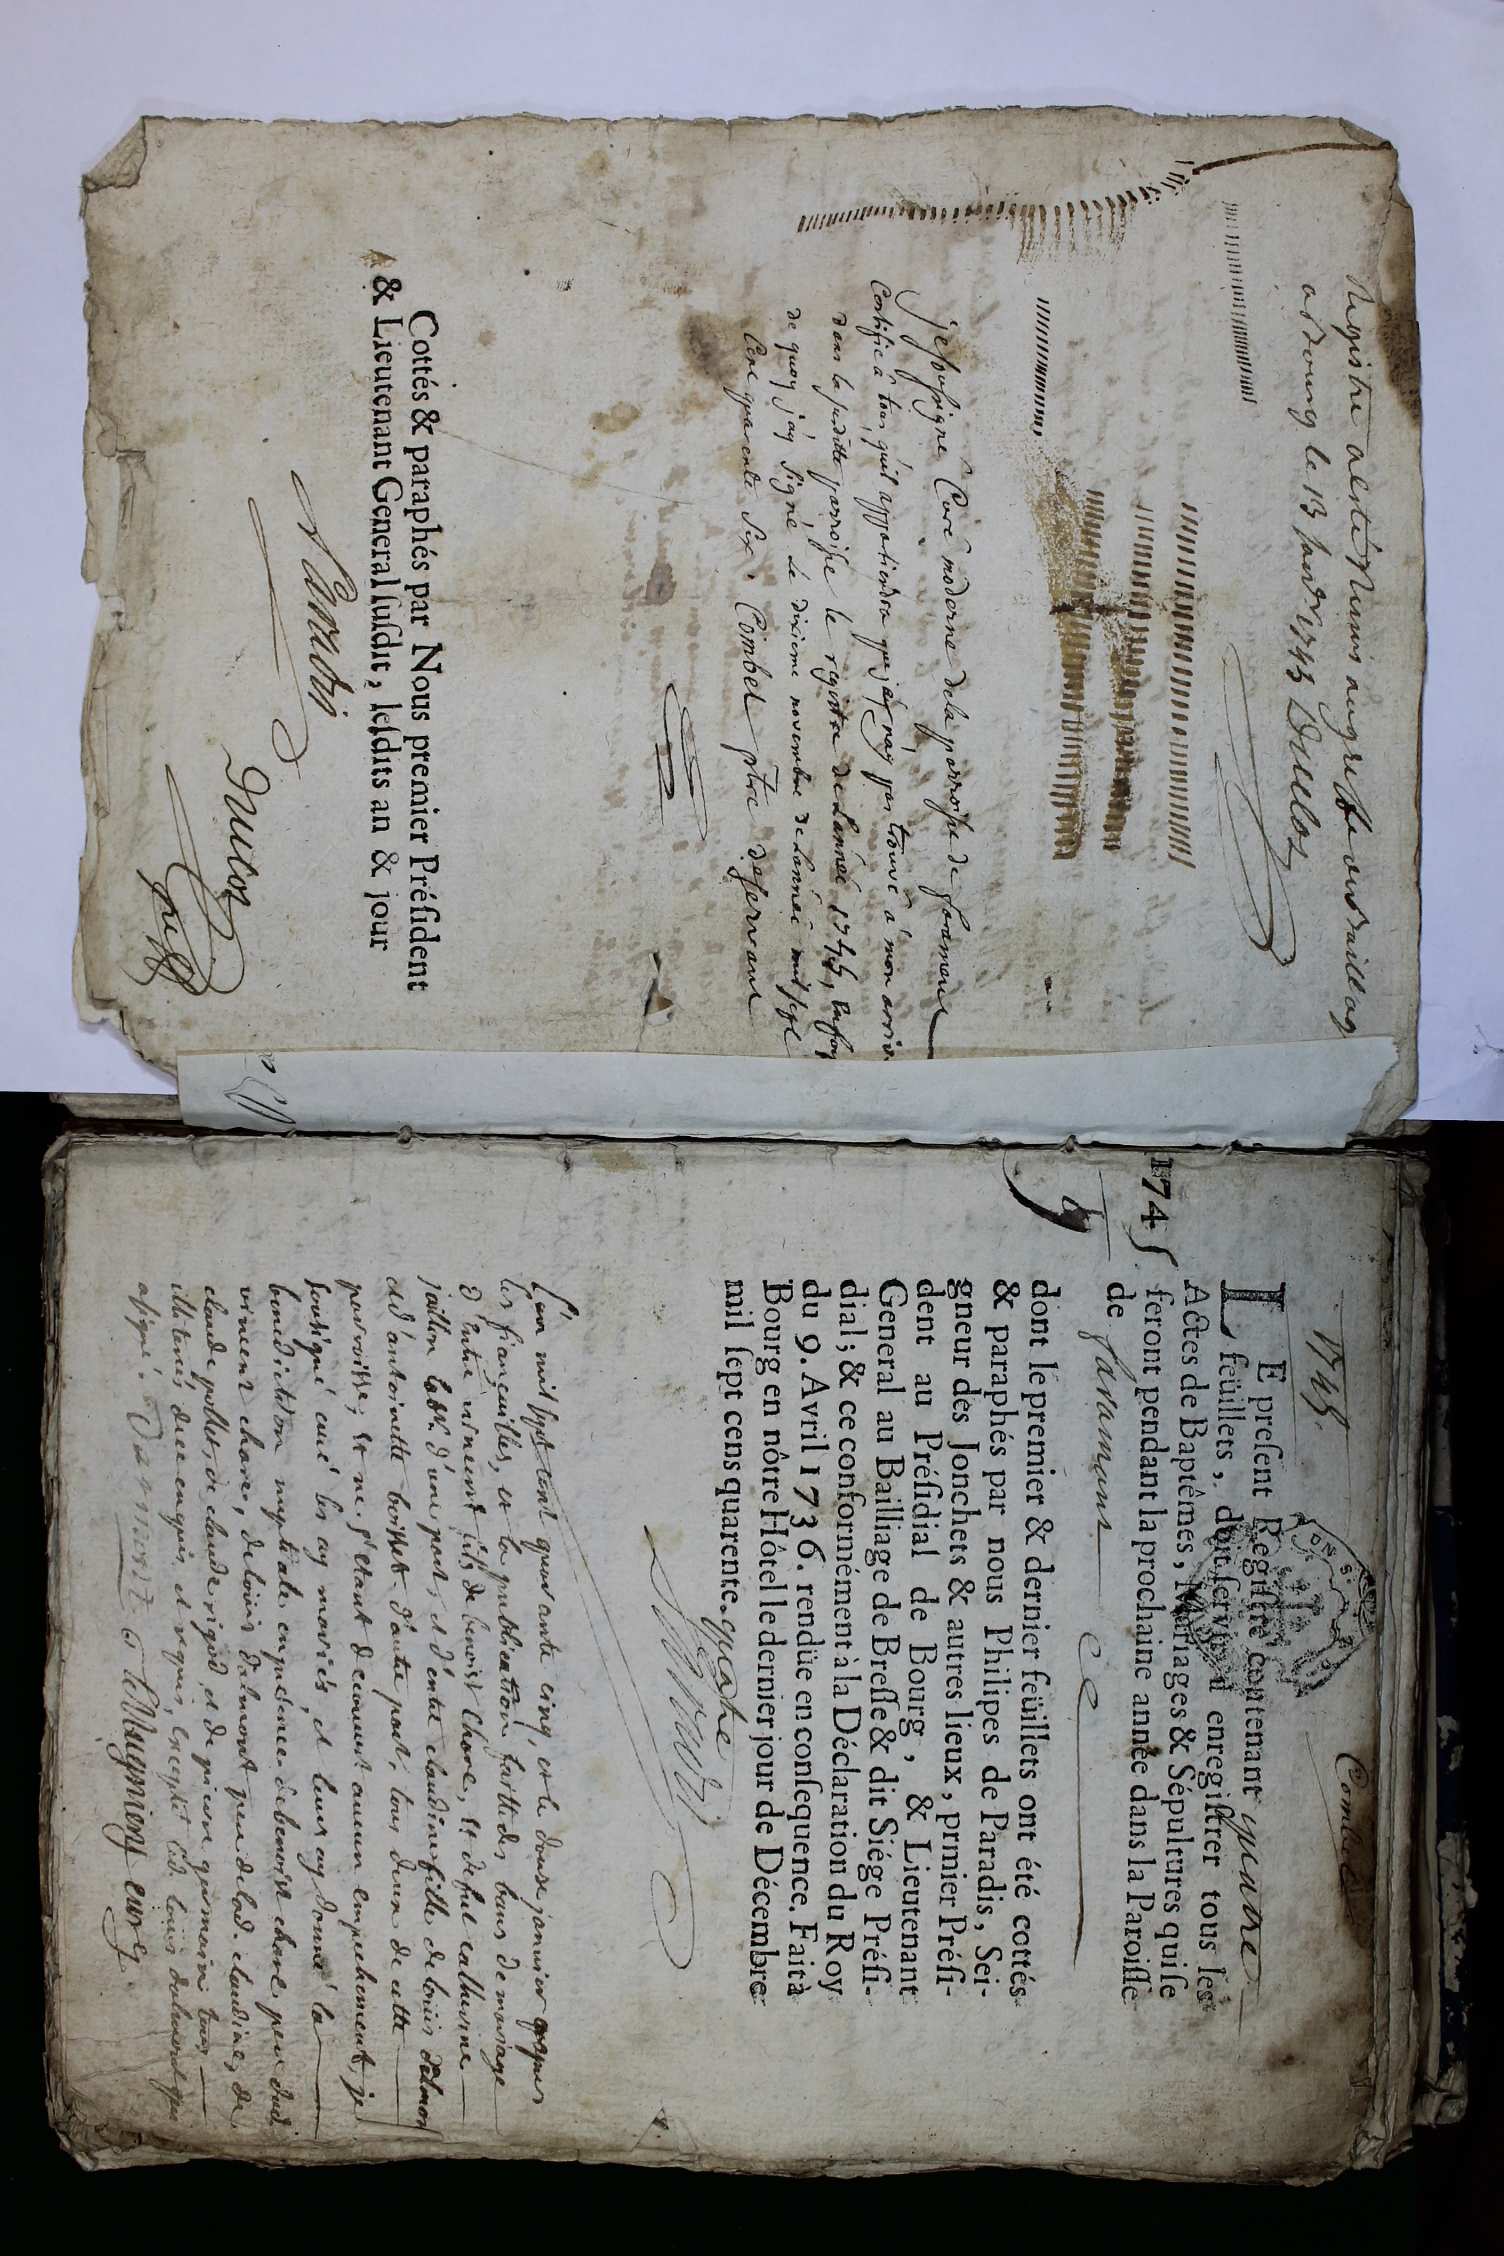 Registre alenté Remis au greffe du baillag
de bourg le 13 janvr 1745 Duclos
je soussigne Curé moderne de la parroisse de faramans
Certifie a tous qu'il appartiendra que jay n'ay pas trouvé a mon arrivé
dans la susditte parroisse le registre de L'année 1744, En foy
de quoy j'ay signé le dixieme novembre de L'année mil sept
Cent quarente six. Combet ptre desservant
Cottés & paraphés par Nous premier Président
& Lieutenant General susdit, lesdits an & jour
Paradis
Duclos
greff
1745.
Combet
1745
LE present Registre contenant quatre
feüillets, doit servir à enregistrer tous les
Actes de Baptêmes, Mariages & Sépultures qui se
feront pendant la prochaine année dans la Paroisse
de faramans
dont le premier & dernier feüillets ont été cottés
& paraphés par nous Philipes de Paradis, Sei-
gneur des Jonchets & autres lieux, prmier Prési-
dent au Présidial de Bourg, & Lieutenant
General au Bailliage de Bresse & dit Siége Prési-
dial; & ce conformément à la Déclaration du Roy
du 9. Avril 1736. rendüe en consequence. Fait à
Bourg en nôtre Hôtel le dernier jour de Décembre
mil sept cens quarente. quatre
Paradis
L'an mil sept cent quarante cinq, et le douse janvier apres
les fiançailles, et la publication faitte des bans de mariage
d'Entre vincent fils de benoist Chare, et de fut catherine
jaillon d'une part, et d'entre claudine fille de loüis dalmon
et d'antoinette boisset d'autre part, tous deux de cette
parroisse; et ne s'etant decouvert aucun empechement, je
soussigné curé les ay mariés, et leur ay donné la
benediction nuptiale en presence de benoist chare pere dud.
vincent chare, de loüis dalmont pere de lad. claudine, de
claude pollet, de claude rigod, et de pierre guemoin tous
illiterés de ce enquis et requis, Excepté led. loüis dalmont qui
a signé. Dalmont Mugnieny curé.